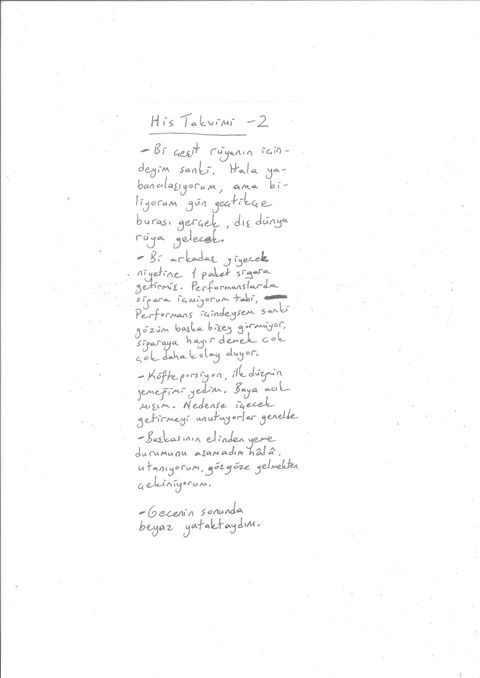 His Takvimi -2
- Bi çeşit rüyanın için-
deyim sanki. Hala ya-
bancılaşıyorum, ama bi-
liyorum gün geçtikçe
burası gerçek, dış dünya
rüya gelecek.
- Bi arkadaş yiyecek
niyetine 1 paket sigara
getirmiş. Performanslarda
sigara içmiyorum tabi,
Performans içindeysem sanki
gözüm başka bişey görmüyor,
sigaraya hayır demek çok
çok daha kolay oluyor.
- Köfte porsiyon, ilk düzgün
yemeğimi yedim. Baya acık
mışım. Nedense içecek
getirmeyi unutuyorlar genelde
- Başkasının elinden yeme
durumunu aşamadım hâlâ,
utanıyorum, gözgöze gelmekten
çekiniyorum.
- Gecenin sonunda
beyaz yataktaydım.